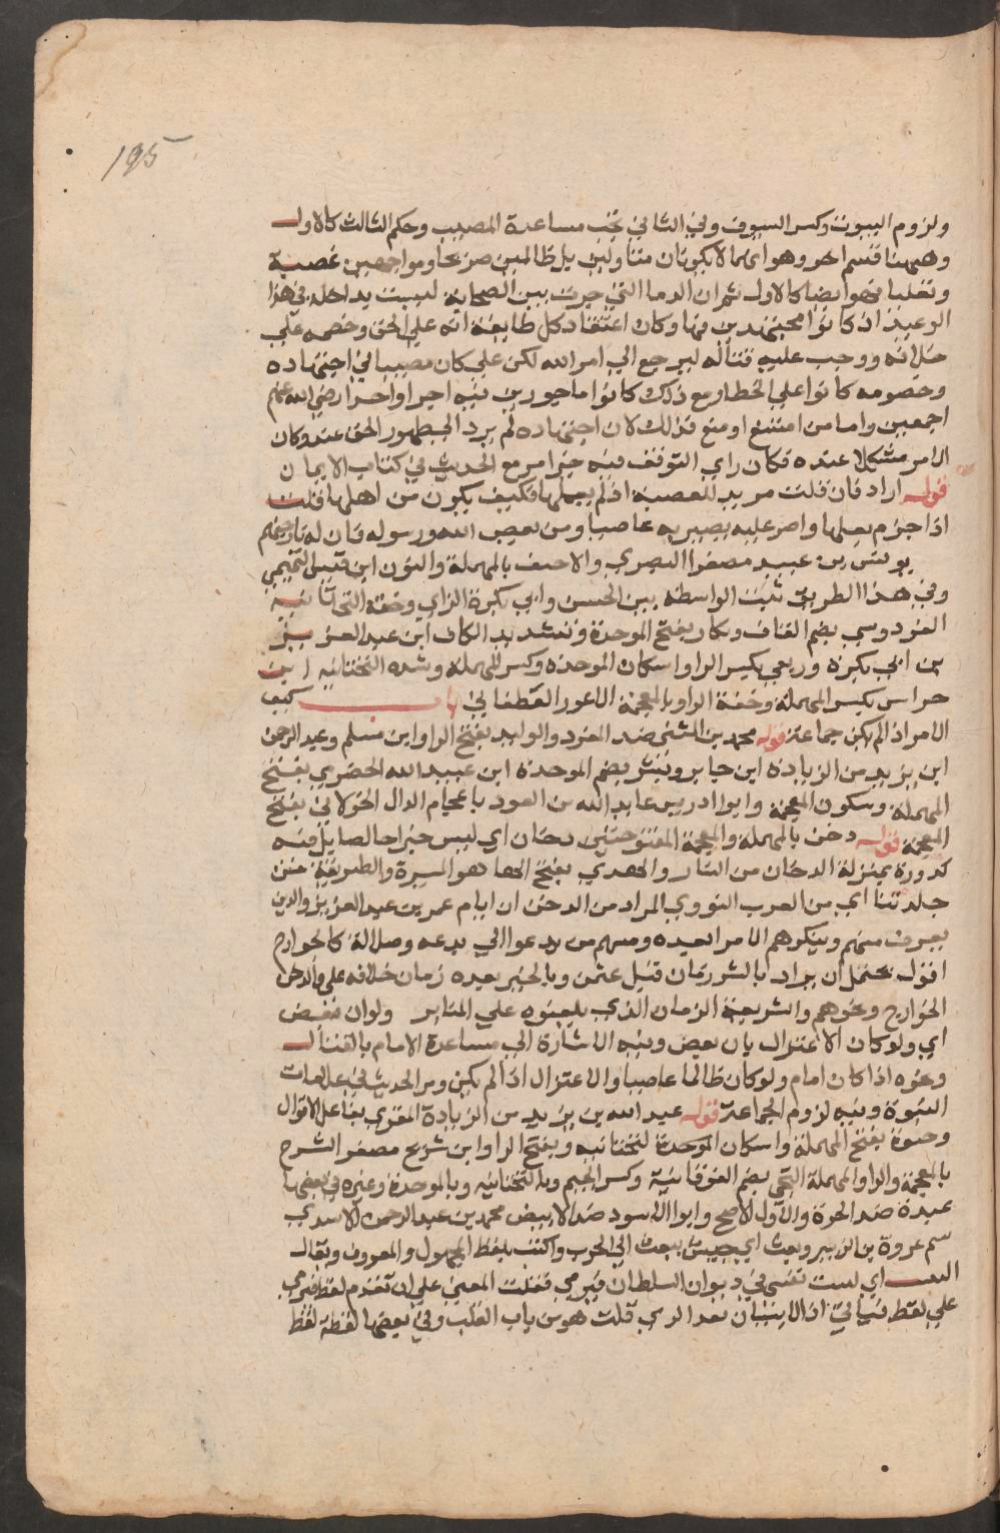 195
ولزوم البيوت وكسر السيوف وفي الثاني تجب مساعدة المصيب وحكم الثالث كالاول
وههنا قسم اخر وهو انهما لا يكونان متاولين بل ظالمين صريحا ومواجهين عصبية
وتغلبا فهو ايضا كالاول ثم ان الدما التي جرت بين الصحابة ليست بداخلة في هذا
الوعيد اذ كانوا مجتهدين فيها وكان اعتقاد كل طايفة انه علي الحق وخصمه علي
خلافه ووجب عليه قتاله ليرجع الي امر الله لكن علي كان مصيبا في اجتهاده
وخصومه كانوا علي الخطا ومع ذلك كانوا ماجورين فيه اجرا واحدا رضي الله عنهم
اجمعين واما من امتنع او منع فذلك لان اجتهاده لم يرد الي ظهور الحق عنده وكان
الامر مشكلا عنده فكان راي التوقف فيه خيرا مر مع الحديث في كتاب الايمان
قوله اراد فان قلت مريد المعصية اذا لم يعملها فكيف يكون من اهلها قلت
اذا جزم بعملها واصر عليه يصير به عاصيا ومن يعص الله ورسوله فان له نار جهنم
يونس بن عبيد مصغرا البصري والاحنف بالمهملة والنون ابن قيس التميمي
وفي هذا الطريق ثبت الواسطة بين الحسن وابي بكرة الزاي وخفة التحتانية
الفردوسي بضم القاف وبكار بفتح الموحدة وتشديد الكاف ابن عبد العزيز
بن ابي بكرة وربعي بكسر الرا واسكان الموحدة وكسر المهملة وشدة التحتانية ابن
حراش بكسر المهملة وخفة الرا وبالمعجمة الاعور الغطفاني باب كيف
الامر اذا لم يكن جماعة قوله محمد بن المثني ضد المفرد والوليد بفتح الواو ابن مسلم وعبد الرحمن
ابن يزيد من الزيادة ابن جابر وبسر بضم الموحدة ابن عبيد الله الحضرمي بفتح
المهملة وسكون المعجمة وابو ادريس عايذ الله من العوذ باعجام الذال الخولاني بفتح
المعجمة قوله دخن بالمهملة والمعجمة المفتوحتين دخان اي ليس خيرا خالصا بل فيه
كدورة بمنزلة الدخان من النار والهدي بفتح الها هو السيرة والطريقة من
جلدتنا اي من العرب النووي المراد من الدخن ان ايام عمر بن عبد العزيز والذين
يعرف منهم وينكر هم الامرا بعده ومنهم من يدعو الي بدعة وضلالة كالخوارج
اقول يحتمل ان يراد بالشر زمان قتل عثمن وبالخير بعده زمان خلافة علي والدخن
الخوارج ونحوهم والشر بعده الزمان الذي يلعنوه علي المنابر ولو ان تعض
اي ولو كان الاعتزال بان تعض وفيه الاشارة الي مساعدة الامام بالقتال
ونحوه اذا كان امام ولو كان ظالما عاصيا والاعتزال اذا لم يكن ومر الحديث في علامات
النبوة وفيه لزوم الجماعة قوله عبد الله بن يزيد من الزيادة المقري بفاعل الاقرال
وحيوة بفتح المهملة واسكان الموحدة لتحتانية وبفتح الواو ابن شريح مصغر الشرح
بالمعجمة والرا والمهملة التجيبي بضم الفوقانية وكسر الجيم وبالتحتانية وبالموحدة وغيره في بعضها
عبدة ضد الحرة والاول الاصح وابو الاسود ضد الابيض محمد بن عبد الرحمن الاسدي
يتيم عروة بن الزبير وبعث اي جيش يبعث الي الحرب واكتتب بلفظ المجهول والمعروف ويقال
اي كتبت نفسي في ديوان السلطان فيرمي فقلت المعني علي ان تقدم لفظ فيرمي
علي لفظ فياتي اذ الاتيان بعد الرمي قلت هو من باب القلب وفي بعضها لفظة لفظ